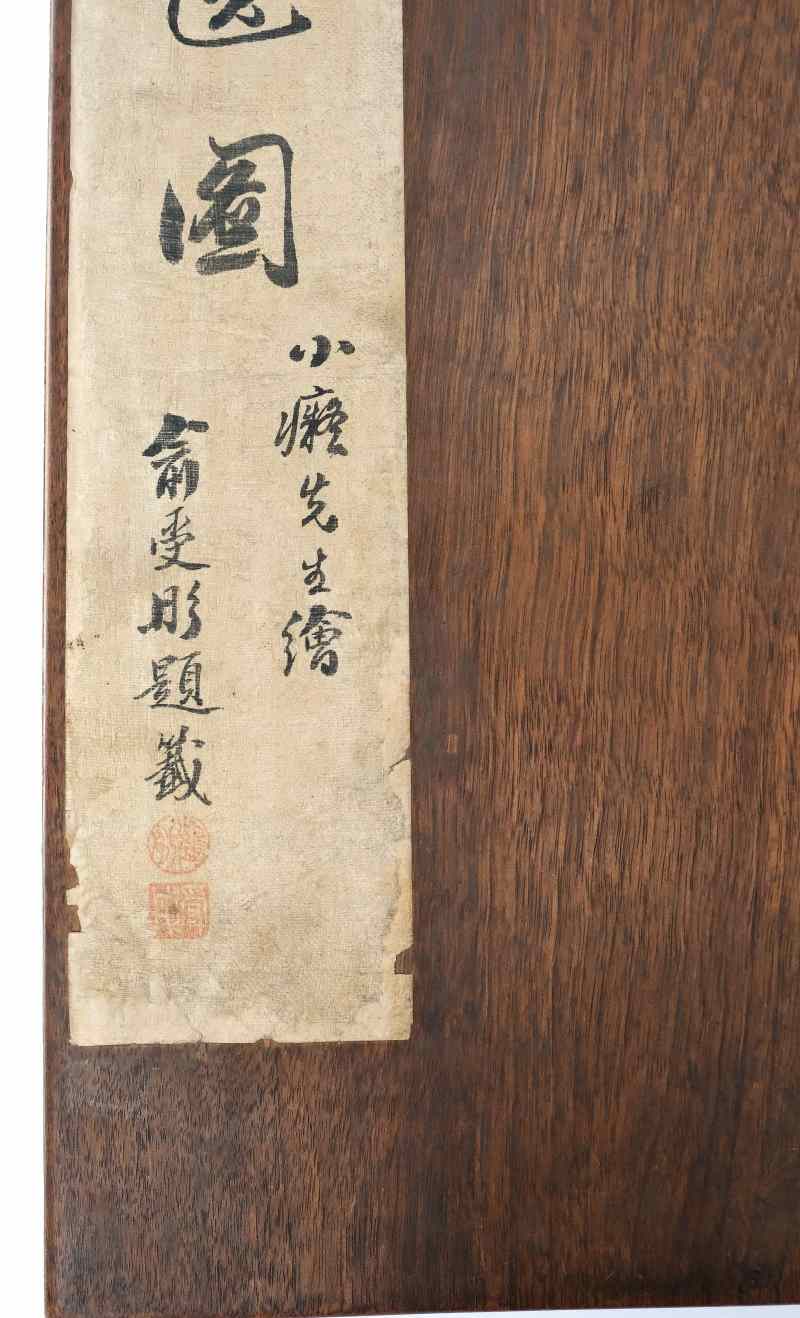 圖
小癡先生繪
俞彤題籤